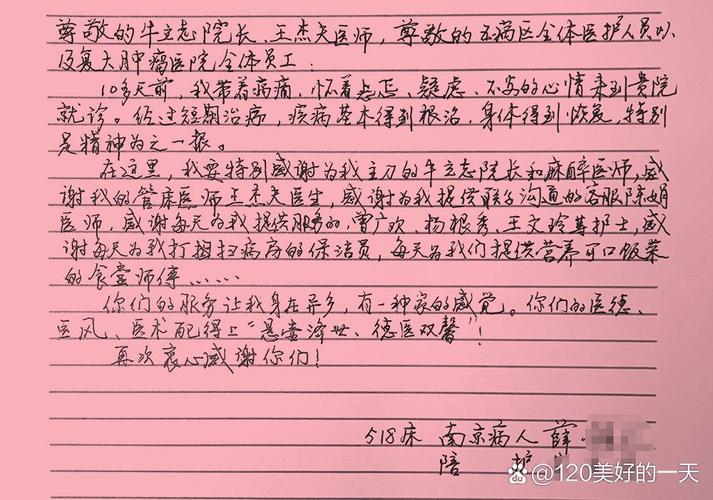 尊敬的牛立志院长、王杰夫医师,尊敬的五病区全体医护人员以
及复大肿瘤医院全体员工:
10多天前,我带着病痛,怀着悲怎、疑虑、不安的心情来到贵院
就诊。经过短期治病,疾病基本得到根治,身体得到恢复,特别
是精神为之一振。
在这里,我要特别感谢为我主刀的牛立志院长和麻醉医师,感
谢我的管床医师王杰夫医生,感谢为我提供联系沟通的客服陈娟
医师,感谢每天为我提供服务的,曾广欢、杨根秀、王文玲等护士,感
谢每天为我打扫病房的保洁员,每天为我们提供营养可口饭菜
的食堂师傅……
你们的服务让我身在异乡,有一种家的感觉。你们的医德、
医风、医术配得上“悬壶济世、德医双馨”!
再次衷心感谢你们!
518床 南京病人 薛
陪护
120美好的一天